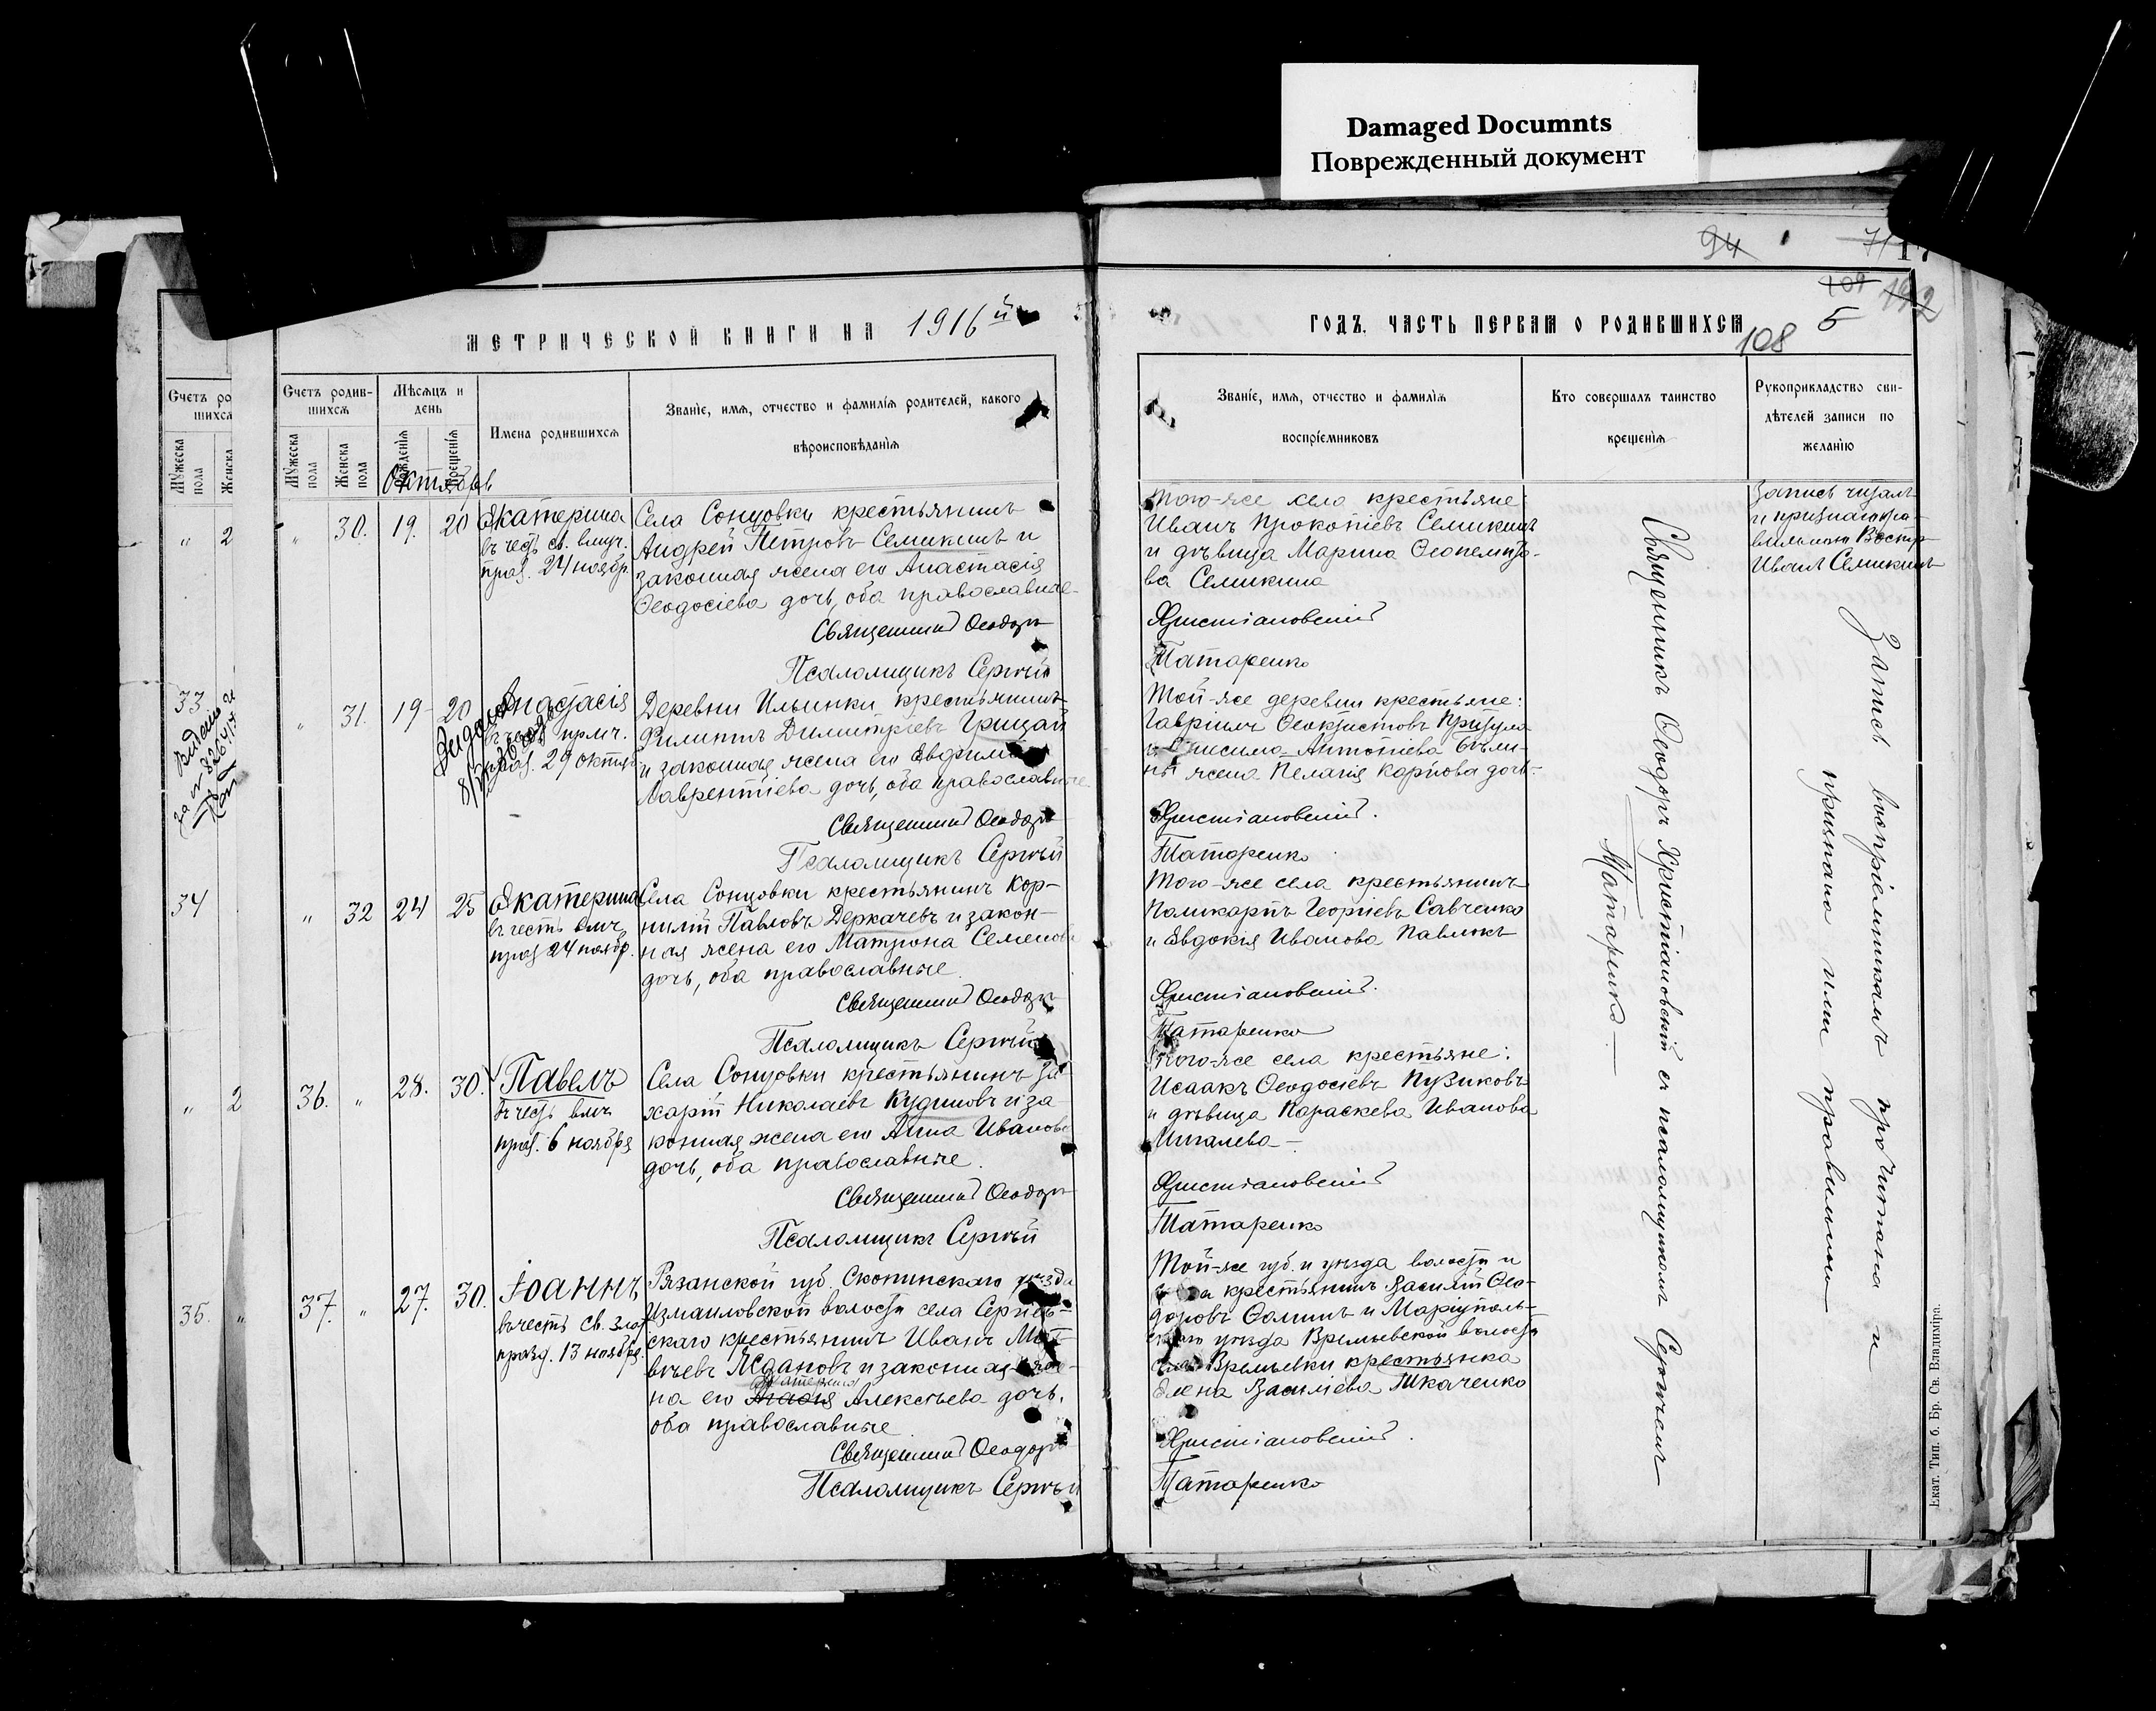 Damaged Documnts
Поврежденный документ
94
71
17
109
192
5
108
МЕТРИЧЕСКОЙ КНИГИ НА 1916й
ГОДЪ, ЧАСТЬ ПЕРВАЯ О РОДИВШИХСЯ
Счетъ ро
шихся
Мужеска пола
Женска
Счетъ родив-
шихся
Мужеска пола
Женска пола
Мѣсяцъ и
день
рожденія
крещенія
Октябрь
Имена родившихся
Званіе, имя, отчество и фамилія родителей, какого
вѣроисповѣданія
Званіе, имя, отчество и фамилія
воспріемниковъ
Кто совершалъ таинство
крещенія
Рукоприкладство сви-
дѣтелей записи по
желанію
„ 2
33
Видано
за № 8264/17
34
„ 2
35. „
„ 30. 19. 20
Екатерина
въ честь св. влмч.
праз. 24 ноябр.
Села Сонцовки крестьянинъ
Андрей Петровъ Семикинъ и
законная жена его Анастасія
Ѳеодосіева дочь, оба православные
Священникъ Ѳеодоръ
Псаломщикъ Сергѣй
Того-же села крестьяне:
Иванъ Прокопіевъ Семикинъ
и дѣвица Марина Ѳеопемпто-
ва Семикина
Христіановскій
Татаренко
Запись читалъ
и признаю пра-
вильною Воспр.
Иванъ Семикинъ
„ 31. 19 20
Анастасія
въ честь прмч.
праз. 29 октяб.
Деревни Ильинки крестьянинъ
Филиппъ Димитріевъ Грицай
и законная жена его Евфимія
Лаврентіева дочь, оба православные
Священникъ Ѳеодоръ
Псаломщикъ Сергѣй
Той-же деревни крестьяне:
Гавріилъ Ѳеоктистовъ Притула
и Онисима Антоніева Бѣли-
ны жена Пелагія Карпова дочь.
Христіановскій.
Татаренко
„ 32 24 25
Екатерина
въ честь влмч.
праз 24 ноябр.
Села Сонцовки крестьянинъ Кор-
нилій Павловъ Деркачевъ и закон-
ная жена его Матрона Семенова
дочь, оба православные.
Священникъ Ѳеодоръ
Псаломщикъ Сергѣй
Того-же села крестьянинъ
Поликарпъ Георгіевъ Савченко
и Евдокія Иванова Павлюкъ
Христіановскій.
Татаренко
36. „ 28. 30.
Павелъ
въ честь
праз. 6 ноября
Села Сонцовки крестьянинъ За-
харій Николаевъ Кудиновъ и за
конная жена его Анна Иванова
дочь, оба православные.
Священникъ Ѳеодоръ
Псаломщикъ Сергѣй
Того-же села крестьяне:
Исаакъ Ѳеодосіевъ Пузиковъ
и дѣвица Параскева Иванова
Христіановскій
Татаренко
37. „ 27. 30.
Іоаннъ
въ честь св. Злат
празд. 13 ноября.
Рязанской губ. Скопинскаго уѣзда
Измаиловской волости села Сергіев-
скаго крестьянинъ Иванъ Мат-
вѣевъ Ждановъ и законная же-
на его Алексѣева дочь,
оба православные.
Священникъ Ѳеодоръ
Псаломщикъ Сергѣй
Той-же губ. и уѣзда волости и
села крестьянинъ Василій Ѳео-
доровъ Ѳоминъ и Маріуполь-
скаго уѣзда Времьевской волости
села Времьевки крестьянка
Елена Василіева Ткаченко
Христіановскій.
Татаренко
Священникъ Ѳеодоръ Христіановскій съ псаломщикомъ Сергѣемъ
Татаренко
Запись воспріемникамъ прочитана и
признана ими правильною
Екат. Тип. б. Бр. Св. Владиміра.